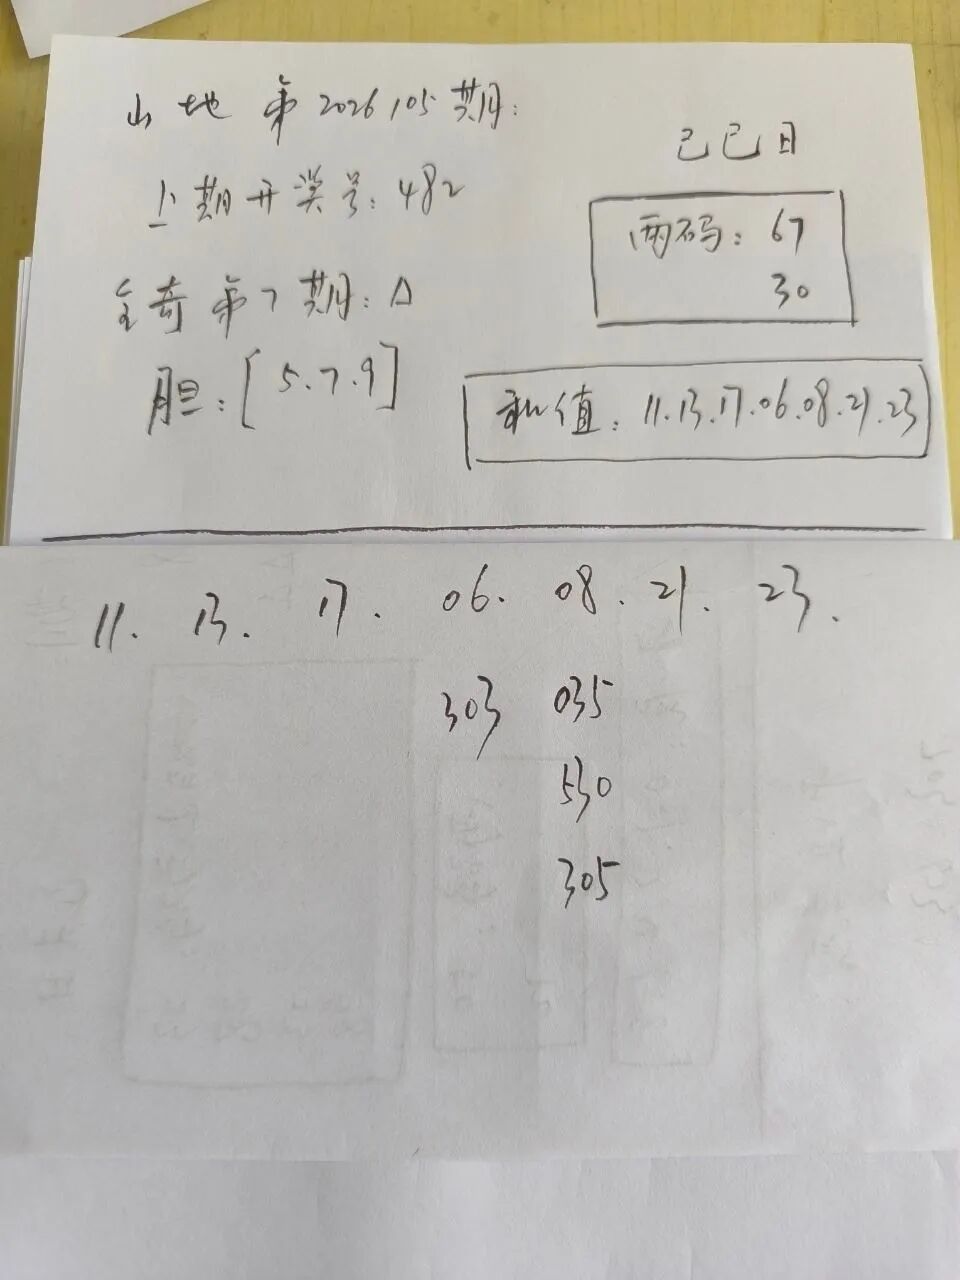 山地 第2026105期:
己巳日
上期开奖号: 482
两码: 67
30
全奇 第7期: △
胆: [5.7.9]
和值: 11.13.17.06.08.21.23
11. 13. 17. 06. 08. 21. 23.
303 035
530
305